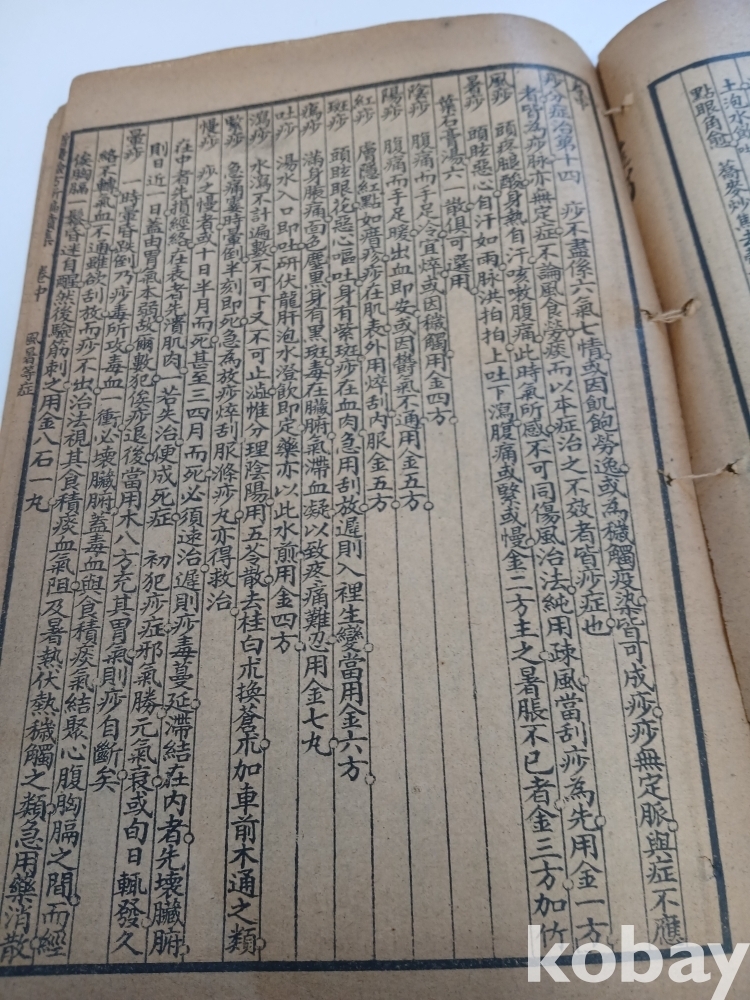 土泡水飲吐
蕎麥炒點
點眼角愈
痧分症治第十四 痧不盡係六氣七情或因飢飽勞逸或為穢觸疫染皆可成痧痧無定脈與症不應
者皆為痧脉亦無定症不論風食勞痰而以本症治之不效者皆痧症也
風痧 頭疼腿酸身熱自汗咳嗽腹痛此時氣所感不可同傷風治法純用疎風當刮痧為先用金一方
暑痧 頭眩惡心自汗如雨脉洪拍拍上吐下瀉腹痛或緊或慢金二方主之暑脹不已者金三方加竹
葉石膏湯六一散俱可選用
陰痧 腹痛而手足人令宜焠或因穢觸用金四方
陽痧 腹痛而手足暖出血即安或因鬱氣不通用金五方
紅痧 膚隱紅點如瘄疹痧在肌表外用焠刮內服金五方
斑痧 頭眩眼花惡心嘔吐身有紫斑痧在血肉急用刮放遲則入裡生變當用金六方
烏痧 滿身脹痛面色黧黑身有黑斑毒在臟腑氣滯血凝以致疫痛難忍用金七丸
吐痧 湯水入口即吐研伏龍肝泡水澄飲即定藥亦以此水煎用金四方
瀉痧 水瀉不計遍數不可下又不可止澁惟分理陰陽用五苓散去桂白朮換蒼朮加車前木通之類
緊痧 急痛霎時暈倒半刻即死急為放痧焠刮服滌痧丸亦得救治
慢痧 痧之慢者或十日半月而死甚至三四月而死必須速治遲則痧毒蔓延滯結在內者先壞臟腑
在中者先損經絡在表者先潰肌肉 若失治便成死症 初犯痧症邪氣勝元氣衰或旬日輒發久
則日近一日蓋由胃氣本弱故爾數犯俟痧退後當用木八方充其胃氣則痧自斷矣
暈痧 一時暈昏跌倒乃痧毒所攻毒血一衝必壞臟腑蓋毒血與食積痰氣結聚心腹胸膈之間而經
絡不轉氣血不通雖欲刮放而痧不出治法視其食積痰血氣阻及暑熱伏熱穢觸之類急用藥消散
俟胸膈一鬆昏迷自醒然後驗筋刺之用金八石一丸
卷中 風暑等症
kobay